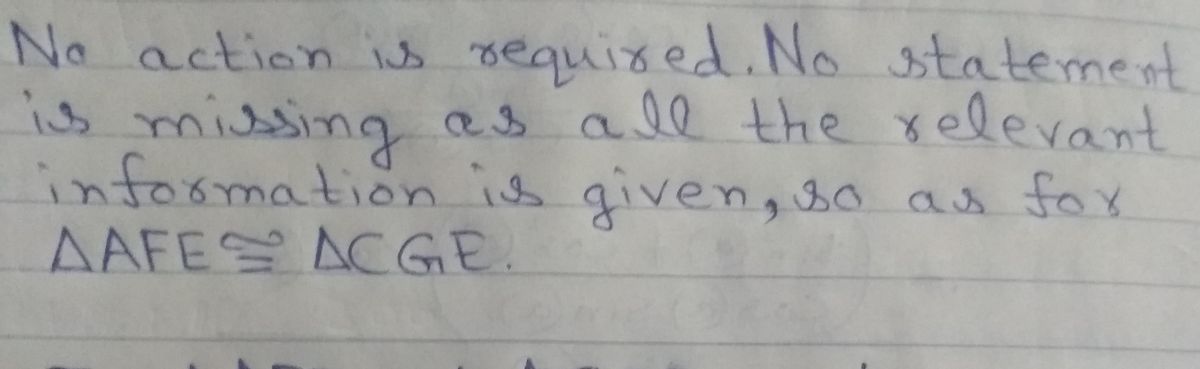 No action is required. No statement
is missing as all the relevant
information is given, so as for
ΔAFE ≅ ΔCGE.